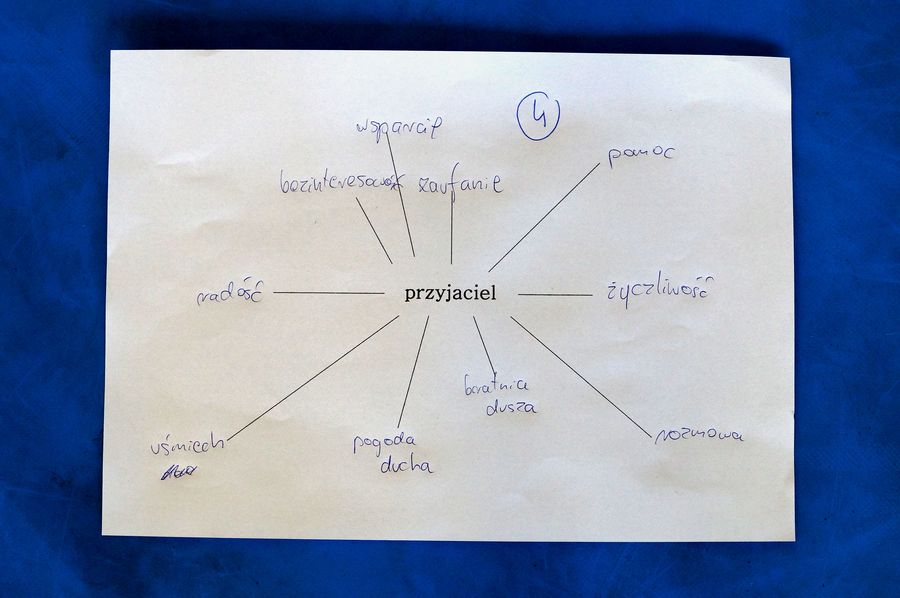 4
wsparcie
pomoc
bezinteresowność zaufanie
radość
przyjaciel
życzliwość
bratnia
dusza
uśmiech
pogoda
ducha
rozmowa